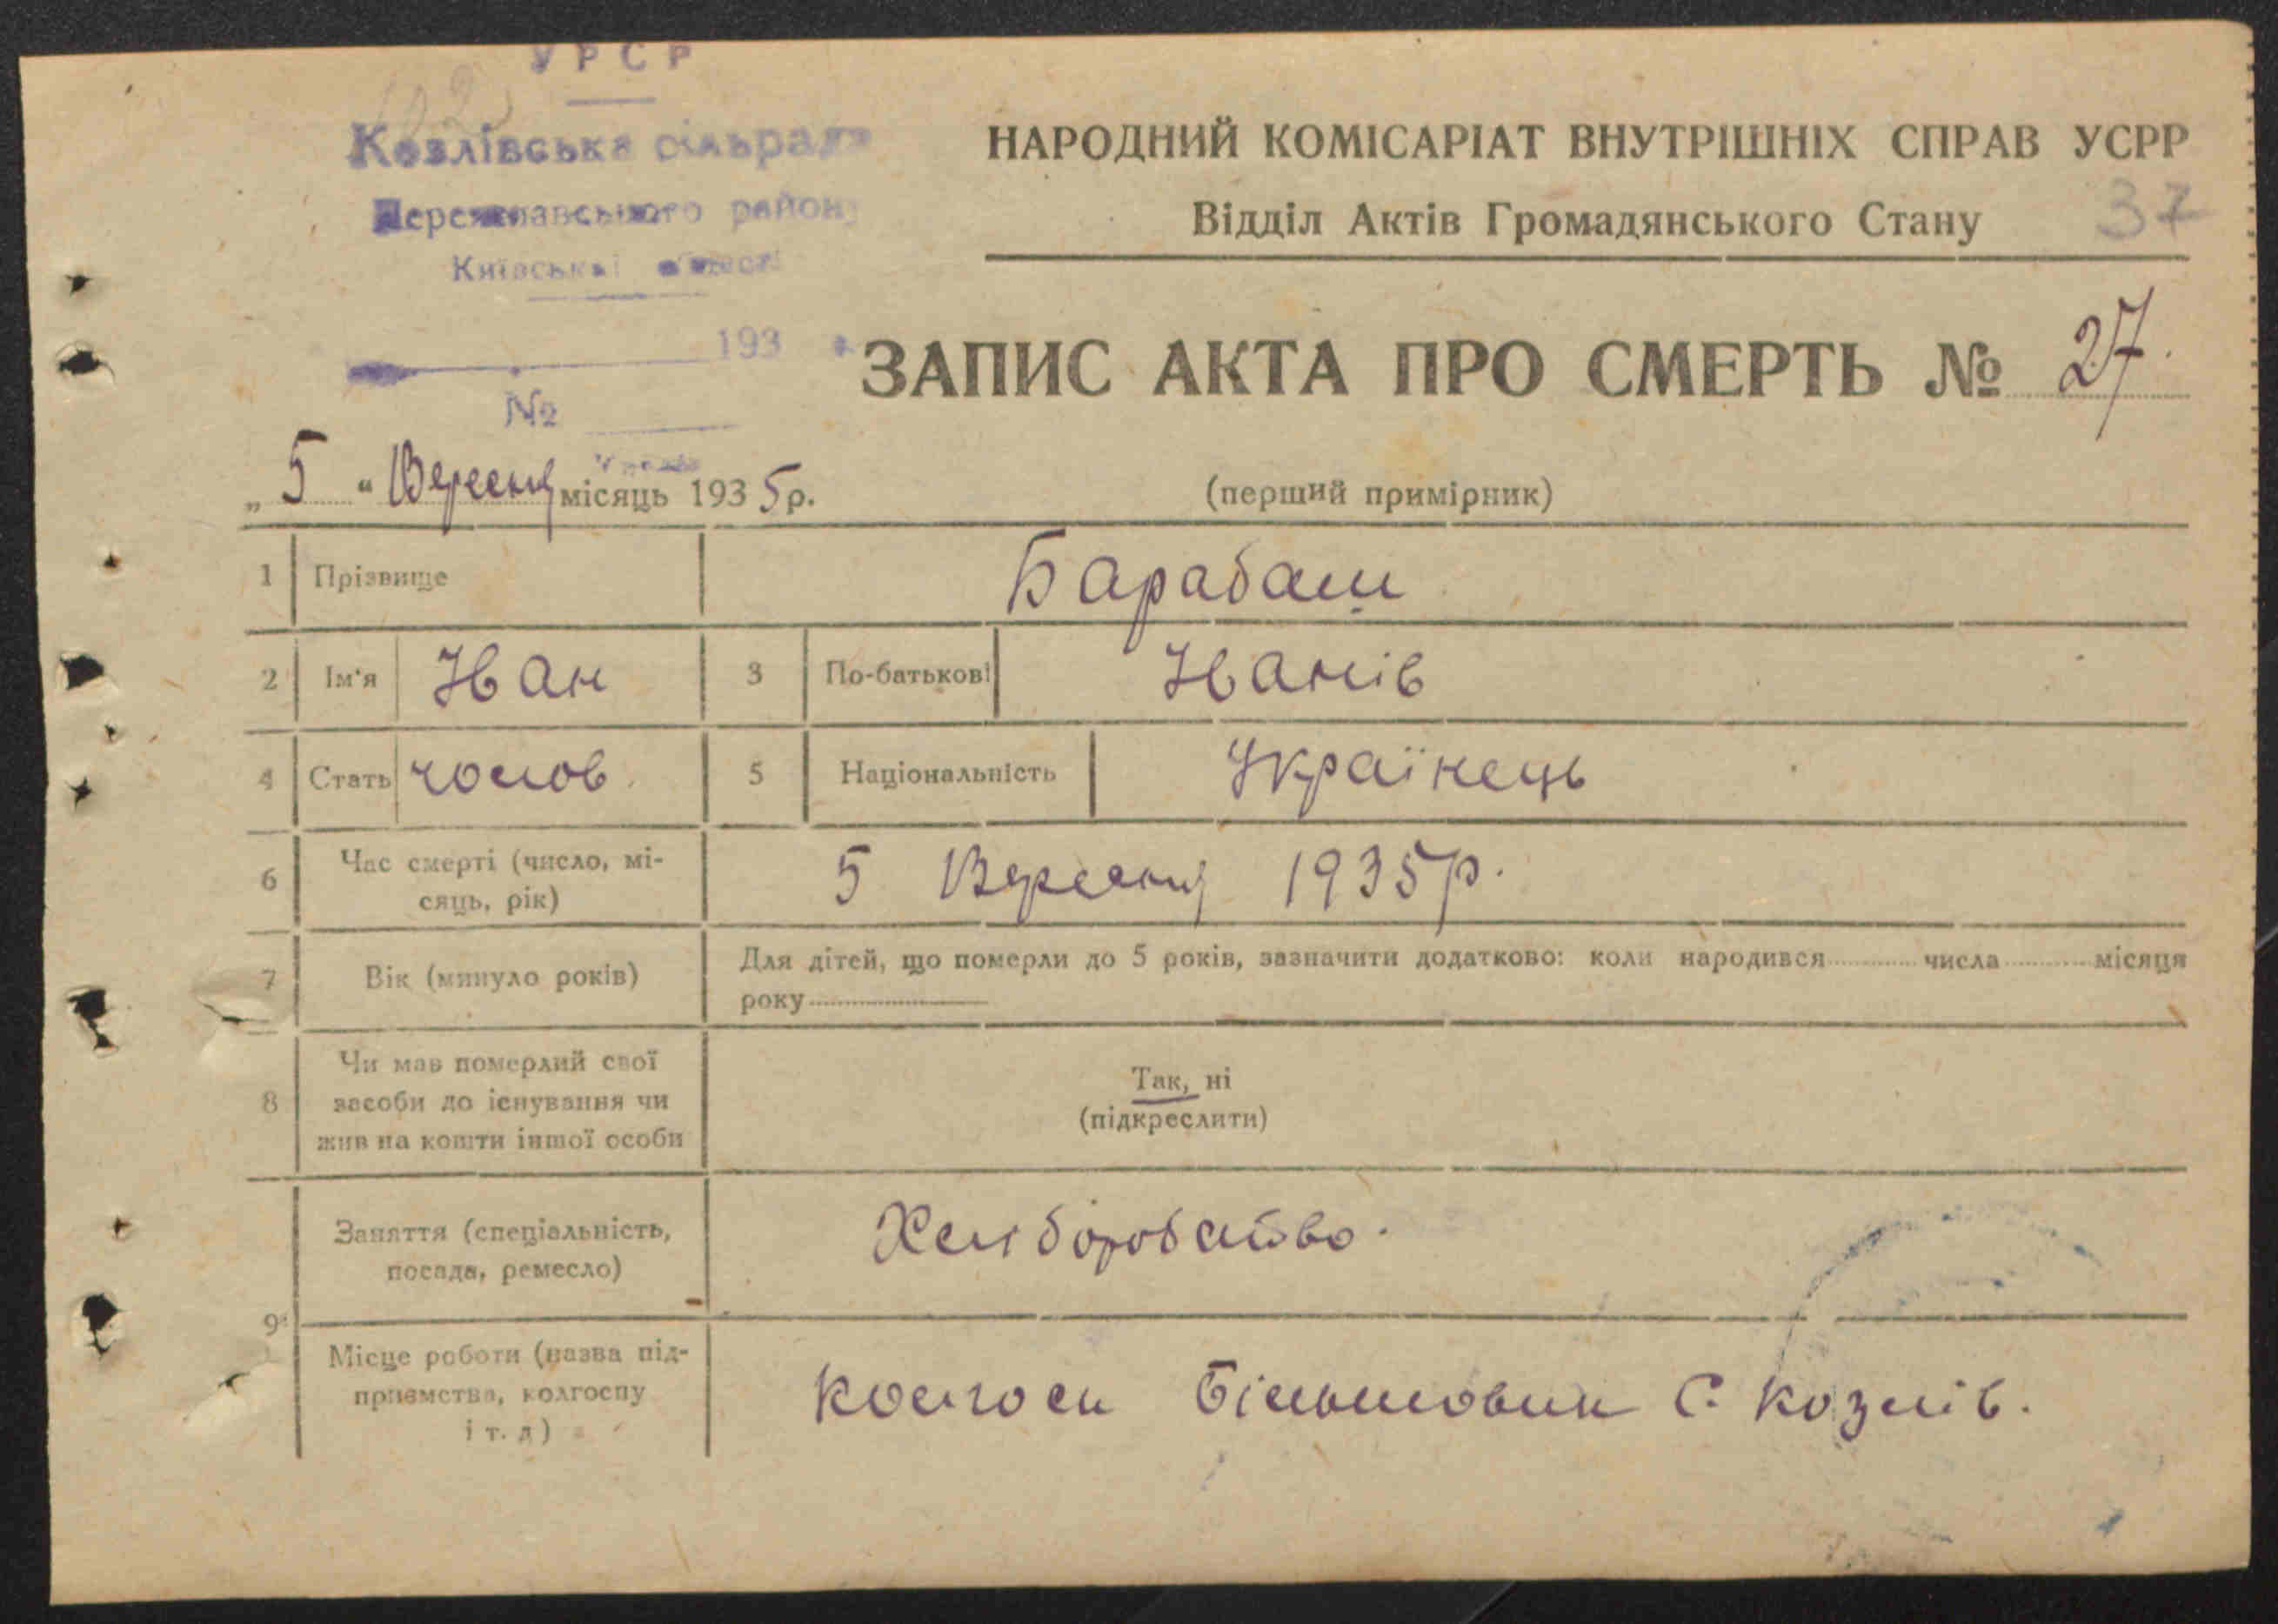 УРСР
Козлівська сільрада
Переяславського району
Київської області
193
№
НАРОДНИЙ КОМІСАРІАТ ВНУТРІШНІХ СПРАВ УСРР
Відділ Актів Громадянського Стану 37
ЗАПИС АКТА ПРО СМЕРТЬ № 27.
„5“ Вересня місяць 1935 р.
(перший примірник)
1 Прізвище Барабаш
2 Ім'я Іван 3 По-батькові Іванів
4 Стать чолов. 5 Національність Українець
6 Час смерті (число, мі-
сяць, рік) 5 Вересня 1935 р.
7 Вік (минуло років) Для дітей, що померли до 5 років, зазначити додатково: коли народився числа місяця
року
8 Чи мав померлий свої
засоби до існування чи
жив на кошти іншої особи
Так, ні
(підкреслити)
9 Заняття (спеціальність,
посада, ремесло) Хліборобство.
Місце роботи (назва під-
приємства, колгоспу
і т. д) колгосп Більшовик С. Козлів.